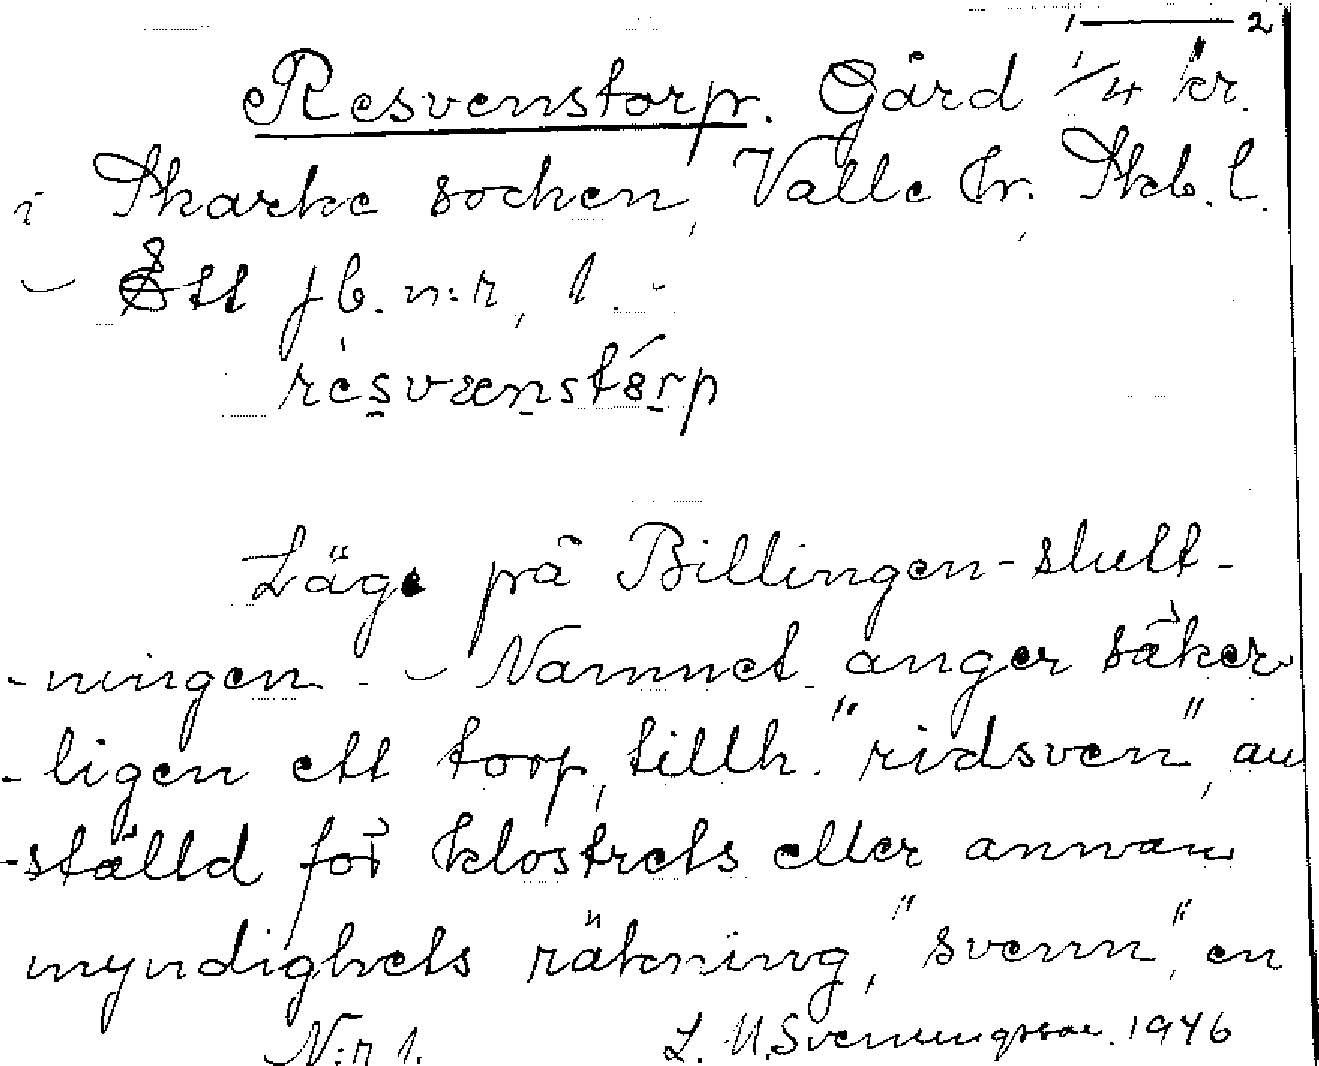 1 — 2
Resvenstorp. Gård 1/4 kr.
i Skarke socken, Valle hr., Skb. l.
– Ett jb. n:r, 1. -
resvænstörp
Läge på Billingen-slutt-
-ningen. – Namnet anger säker-
-ligen ett torp, tillh. "ridsven", an
-ställd för klostrets eller annan
myndighets räkning, "svenn", en
N:r 1. L. M. Svenungsson. 1946